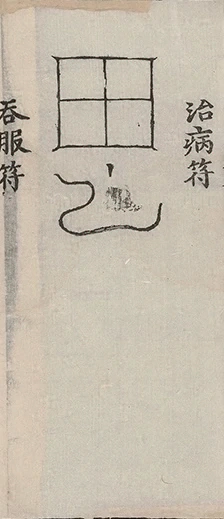 治病符
吞服符